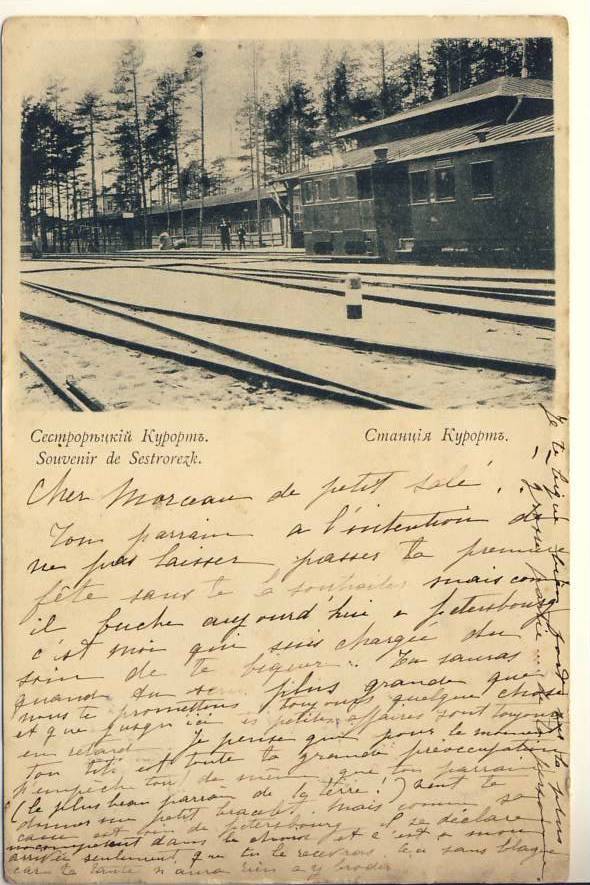 Сестрорѣцкій Курортъ.
Станція Курортъ.
Souvenir de Sestrorezk.
Cher Morceau de petit salé!
Ton parrain a l'intention de
ne pas laisser passer ta premiere
fête sans te la souhaiter mais comme
il buche aujourd'hui à Petersbourg
c'est moi qui suis chargée du
soin de te biquer. Tu sauras
quand tu seras plus grande que
nous te promettons toujours quelque chose
et que jusqu'ici les petites affaires sont toujours
en retard. Je pense que pour le moment
ton tité est toute ta grande préoccupation
n'empêche tout de même que ton parrain
(le plus beau parrain de la terre!) veut te
donner un petit bracelet. Mais comme sa
est loin de Petersbourg il se déclare
incompetent dans la chose et c'est à mon
arrivée seulement que tu le recevras
car ta tante n'aura rien a y broder
Je te bique bien fort sur la plus
grosse partie de ta personne